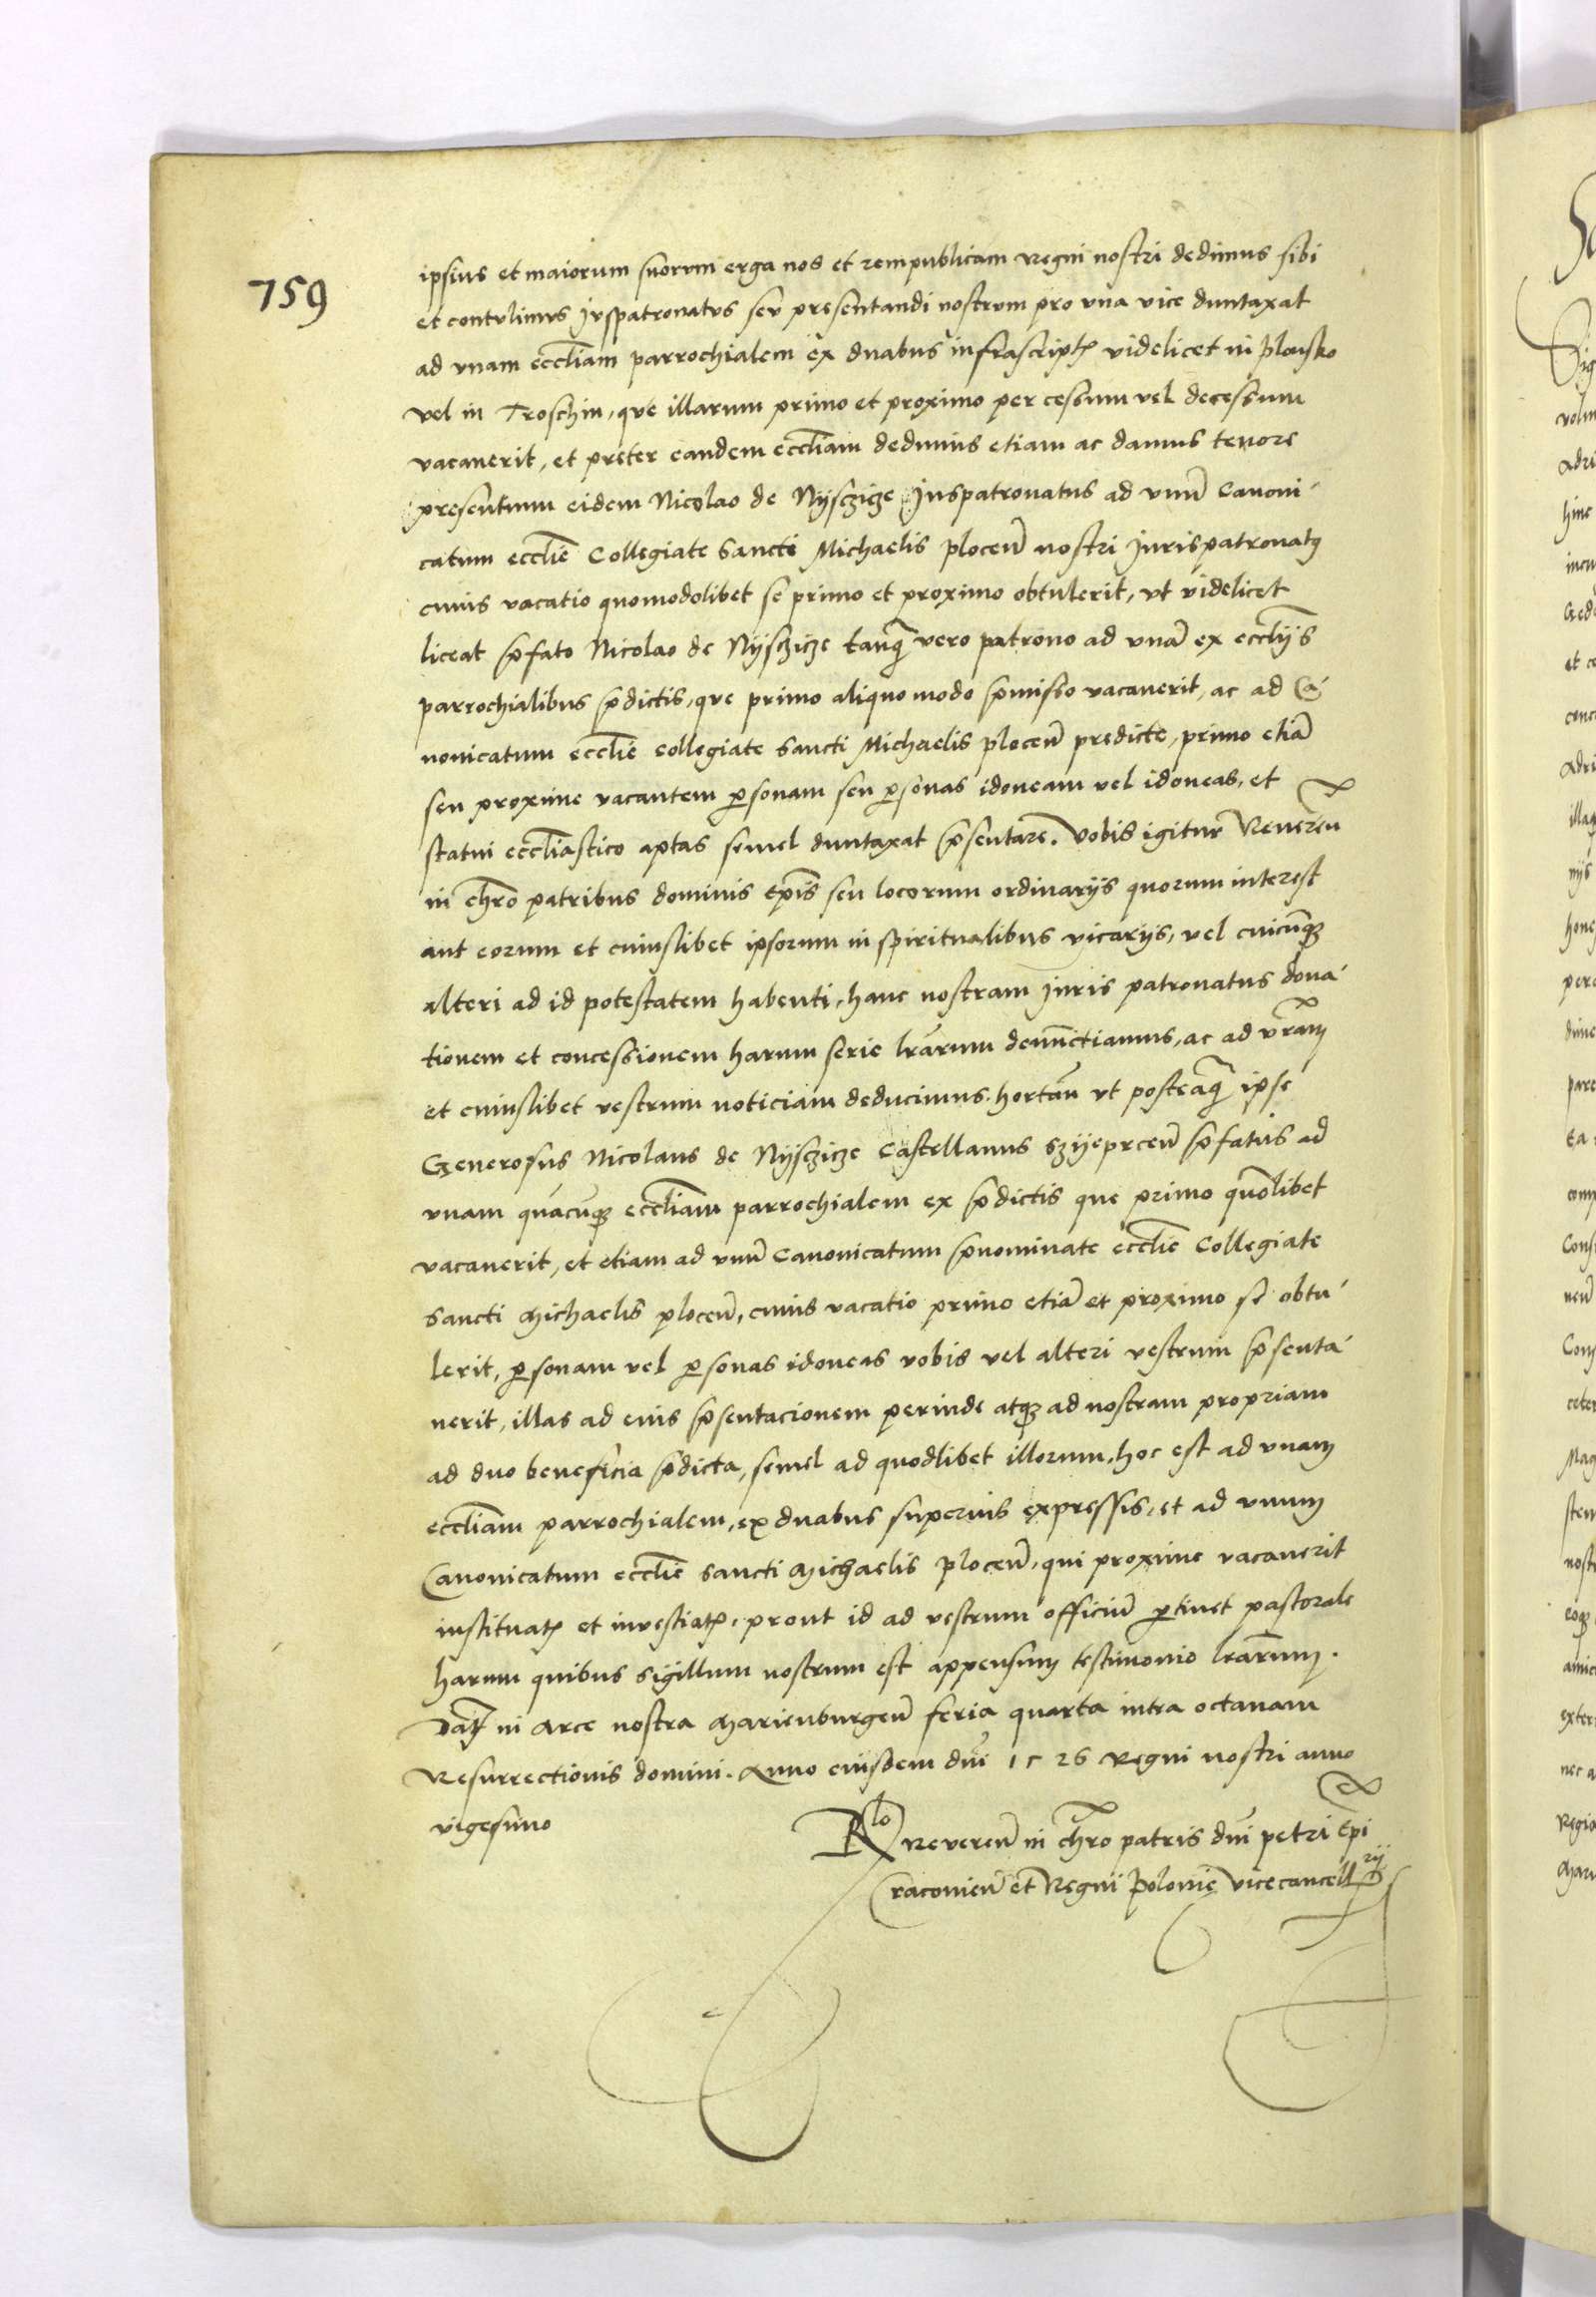 759
ipsius et maiorum suorum erga nos et rempublicam Regni nostri dedimus sibi
et contulimus Juspatronatus seu presentandi nostrum pro una vice duntaxat
ad vnam eccliam parrochialem ex duabus infrascriptis videlicet in Plonsko
vel in Troschin, que illarum primo et proximo per cessum vel decessum
vacauerit, et preter eandem eccliam dedimus etiam ac damus tenore
presentium eidem Nicolao de Nijsczicze Juspatronatus ad vnum Canoni-
catum ecclie Collegiate Sancti Michaelis plocen̄ nostri Jurispatronatus
cuius vacatio quomodolibet se primo et proximo obtulerit, vt videlicet
liceat p̄fato Nicolao de Nijsczicze tanq̄ vero patrono ad vnā ex eccliijs
parrochialibus p̄dictis, que primo aliquo modo p̄misso vacauerit, ac ad Ca-
nonicatum ecclie collegiate Sancti Michaelis plocen̄ predicte, primo etiā
seu proxime vacantem personam seu personas idoneam vel idoneas, et
statui eccliastico aptas semel duntaxat p̄sentare. Vobis igitur Reueren̄
in chro patribus dominis Epis seu locorum ordinarijs quorum interest
aut eorum et cuiuslibet ipsorum in spiritualibus vicarijs, vel cuicunq̄
alteri ad id potestatem habenti, hanc nostram Juris patronatus dona-
tionem et concessionem harum serie lrarum denunctiamus, ac ad vram
et cuiuslibet vestrum noticiam deducimus. hortan̄ vt posteaq̄ ipse
Generosus Nicolaus de Nijsczicze Castellanus Szijeprcen̄ p̄fatus ad
vnam quacunq̄ eccliam parrochialem ex p̄dictis que primo quolibet
vacauerit, et etiam ad vnū Canonicatum p̄nominate ecclie Collegiate
Sancti Michaelis plocen̄, cuius vacatio primo etiā et proximo se obtu-
lerit, personam vel personas idoneas vobis vel alteri vestrum p̄senta-
uerit, illas ad eius p̄sentacionem perinde atq̄ ad nostram propriam
ad duo beneficia p̄dicta, semel ad quodlibet illorum, hoc est ad vnam
eccliam parrochialem, ex duabus superius expressis, et ad vnum
Canonicatum ecclie Sancti Michaelis plocen̄, qui proxime vacauerit
instituatis et inuestiatis, prout id ad vestrum officiū pertinet pastorale
harum quibus Sigillum nostrum est appensum testimonio lrarum.
Dat̄ in Arce nostra Marienburgen̄ feria quarta intra octauam
Resurrectionis domini. Anno eiusdem dn̄i 1526 Regni nostri anno
vigesimo
Rlo Reueren̄ in chro patris dn̄i petri Epi
Cracouien̄ et Regni Polonie Vicecancellrij